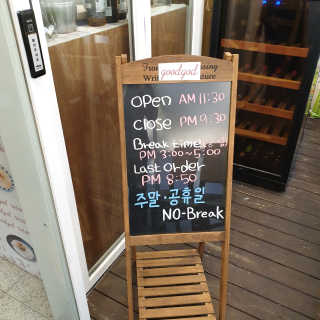 goodgod
OPEN AM 11:30
CLOSE PM 9:30
Break time
PM 3:00~5:00
Last Order
PM 8:50
주말·공휴일
NO-Break